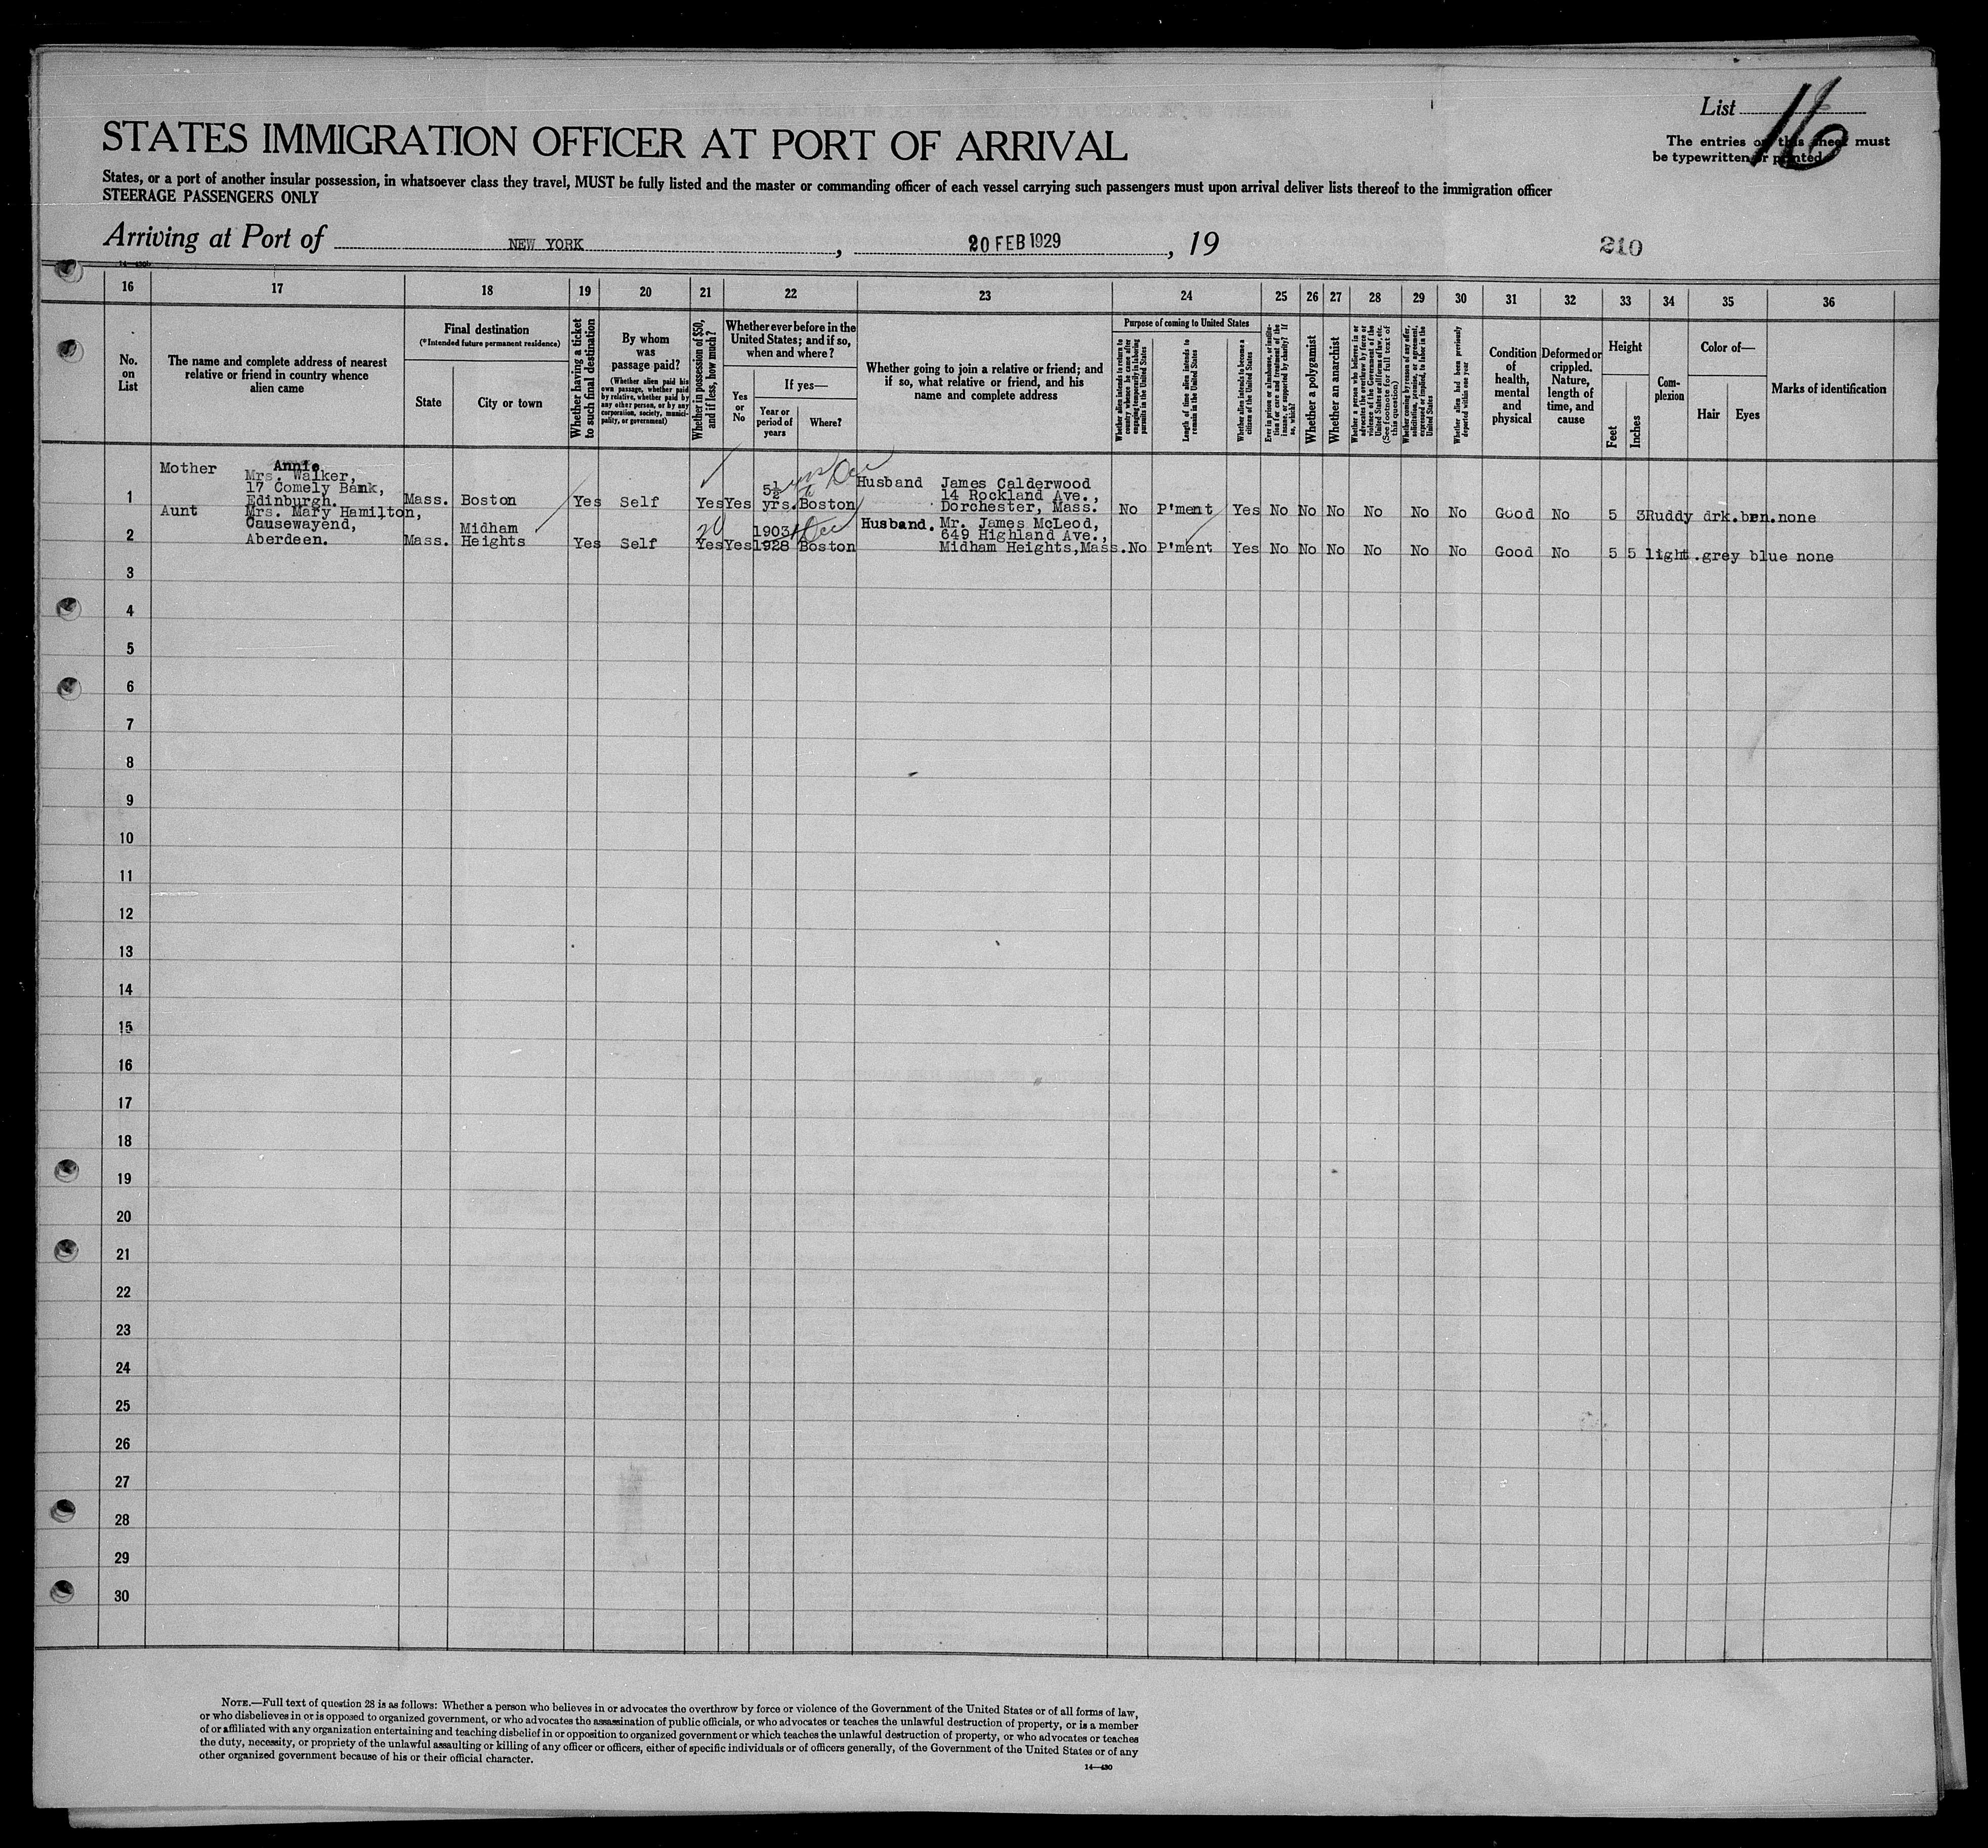 List 16
STATES IMMIGRATION OFFICER AT PORT OF ARRIVAL
The entries on this sheet must
be typewritten or printed
States, or a port of another insular possession, in whatsoever class they travel, MUST be fully listed and the master or commanding officer of each vessel carrying such passengers must upon arrival deliver lists thereof to the immigration officer
STEERAGE PASSENGERS ONLY
Arriving at Port of NEW YORK, 20 FEB 1929, 19
210
14—430b
16 17 18 19 20 21 22 23 24 25 26 27 28 29 30 31 32 33 34 35 36
No. on List
The name and complete address of nearest relative or friend in country whence alien came
Final destination
(*Intended future permanent residence)
State
City or town
Whether having a ticket to such final destination
By whom was passage paid?
(Whether alien paid his own passage, whether paid by relative, whether paid by any other person, or by any corporation, society, municipality, or government)
Whether in possession of $50, and if less, how much?
Whether ever before in the United States; and if so, when and where?
Yes or No
If yes—
Year or period of years
Where?
Whether going to join a relative or friend; and if so, what relative or friend, and his name and complete address
Purpose of coming to United States
Whether alien intends to return to country whence he came after engaging temporarily in laboring pursuits in the United States
Length of time alien intends to remain in the United States
Whether alien intends to become a citizen of the United States
Ever in prison or almshouse, or institution for care and treatment of the insane, or supported by charity? If so, which?
Whether a polygamist
Whether an anarchist
Whether a person who believes in or advocates the overthrow by force or violence of the Government of the United States or all forms of law, etc. (See footnote for full text of this question)
Whether coming by reason of any offer, solicitation, promise, or agreement, expressed or implied, to labor in the United States
Whether alien had been previously deported within one year
Condition of health, mental and physical
Deformed or crippled. Nature, length of time, and cause
Height
Feet
Inches
Complexion
Color of—
Hair
Eyes
Marks of identification
Mother Annie
Mrs. Walker,
17 Comely Bank,
Edinburgh.
1 Mass. Boston Yes Self Yes Yes 5½ yrs. Boston
Husband James Calderwood
14 Rockland Ave.,
Dorchester, Mass.
No P'ment Yes No No No No No No Good No 5 3 Ruddy drk.brn. none
Aunt Mrs. Mary Hamilton,
Causewayend,
Aberdeen.
2 Mass. Midham Heights Yes Self 20 Yes Yes 1903 1928 Boston
Husband. Mr. James McLeod,
649 Highland Ave.,
Midham Heights, Mass.
No P'ment Yes No No No No No No Good No 5 5 light. grey blue none
3
4
5
6
7
8
9
10
11
12
13
14
15
16
17
18
19
20
21
22
23
24
25
26
27
28
29
30
NOTE.—Full text of question 28 is as follows: Whether a person who believes in or advocates the overthrow by force or violence of the Government of the United States or of all forms of law,
or who disbelieves in or is opposed to organized government, or who advocates the assassination of public officials, or who advocates or teaches the unlawful destruction of property, or is a member
of or affiliated with any organization entertaining and teaching disbelief in or opposition to organized government or which teaches the unlawful destruction of property, or who advocates or teaches
the duty, necessity, or propriety of the unlawful assaulting or killing of any officer or officers, either of specific individuals or of officers generally, of the Government of the United States or of any
other organized government because of his or their official character.
14—430